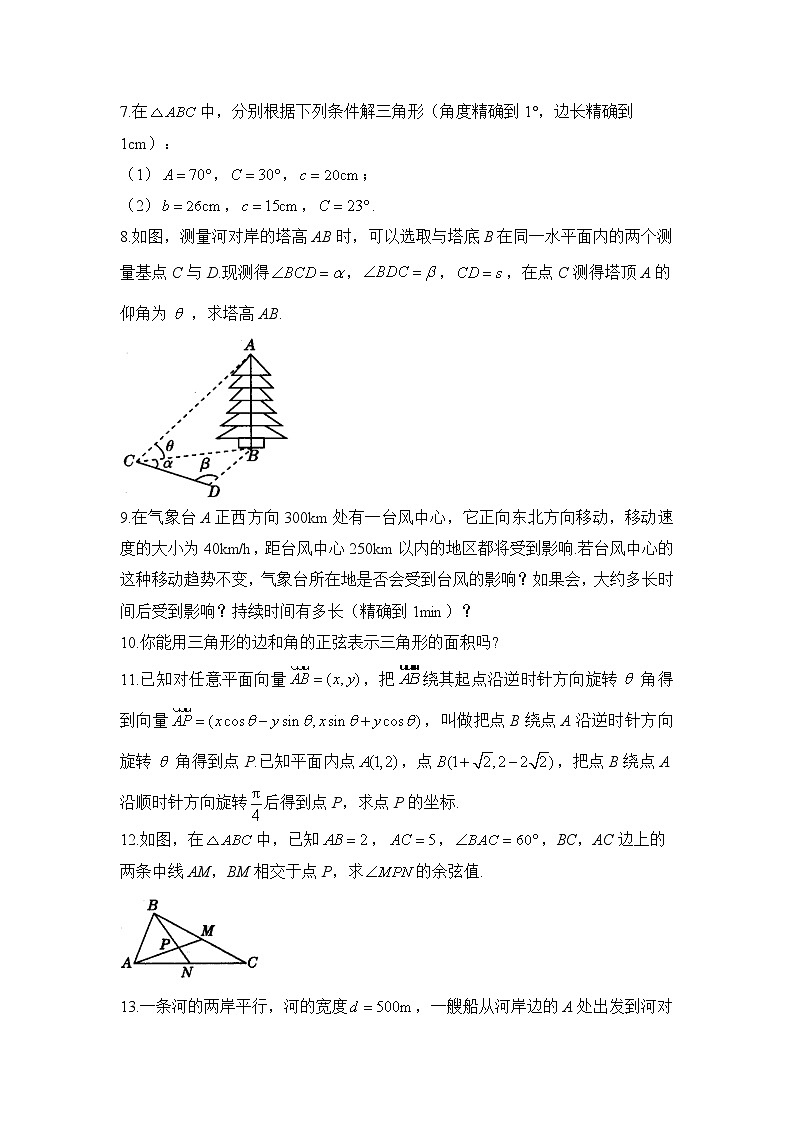 7.在△ABC中，分别根据下列条件解三角形（角度精确到1°，边长精确到
1cm）：
（1）A＝70°，C＝30°，c＝20cm；
（2）b＝26cm，c＝15cm，C＝23°.
8.如图，测量河对岸的塔高AB时，可以选取与塔底B在同一水平面内的两个测
量基点C与D.现测得∠BCD＝α，∠BDC＝β，CD＝s，在点C测得塔顶A的
仰角为 θ，求塔高AB.
A
θ
C α β B
D
9.在气象台A正西方向300km处有一台风中心，它正向东北方向移动，移动速
度的大小为40km/h，距台风中心250km以内的地区都将受到影响.若台风中心的
这种移动趋势不变，气象台所在地是否会受到台风的影响？如果会，大约多长时
间后受到影响？持续时间有多长（精确到1min）？
10.你能用三角形的边和角的正弦表示三角形的面积吗？
11.已知对任意平面向量AB＝(x, y)，把AB绕其起点沿逆时针方向旋转 θ 角得
到向量AP＝(xcosθ－ysinθ, xsinθ＋ycosθ)，叫做把点B绕点A沿逆时针方向
旋转 θ 角得到点P.已知平面内点A(1,2)，点B(1＋√2, 2－2√2)，把点B绕点A
沿顺时针方向旋转π/4后得到点P，求点P的坐标.
12.如图，在△ABC中，已知AB＝2，AC＝5，∠BAC＝60°，BC，AC边上的
两条中线AM，BM相交于点P，求∠MPN的余弦值.
B
M
P
A N C
13.一条河的两岸平行，河的宽度d＝500m，一艘船从河岸边的A处出发到河对